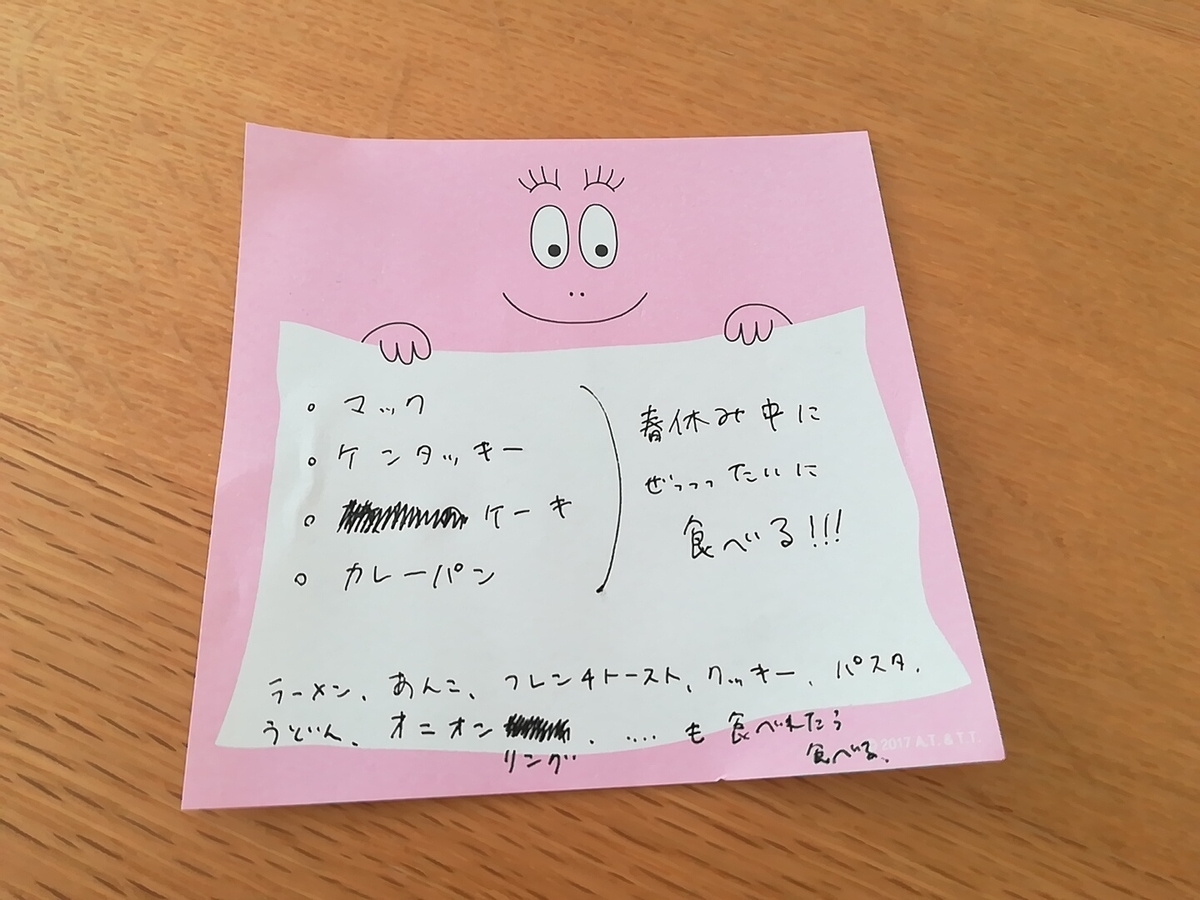 。マック
。ケンタッキー
。ケーキ
。カレーパン
春休み中に
ぜっっったいに
食べる!!!
ラーメン、あんこ、フレンチトースト、クッキー、パスタ、
うどん、オニオンリング、....も食べれたら
食べる。
© 2017 A.T. & T.T.